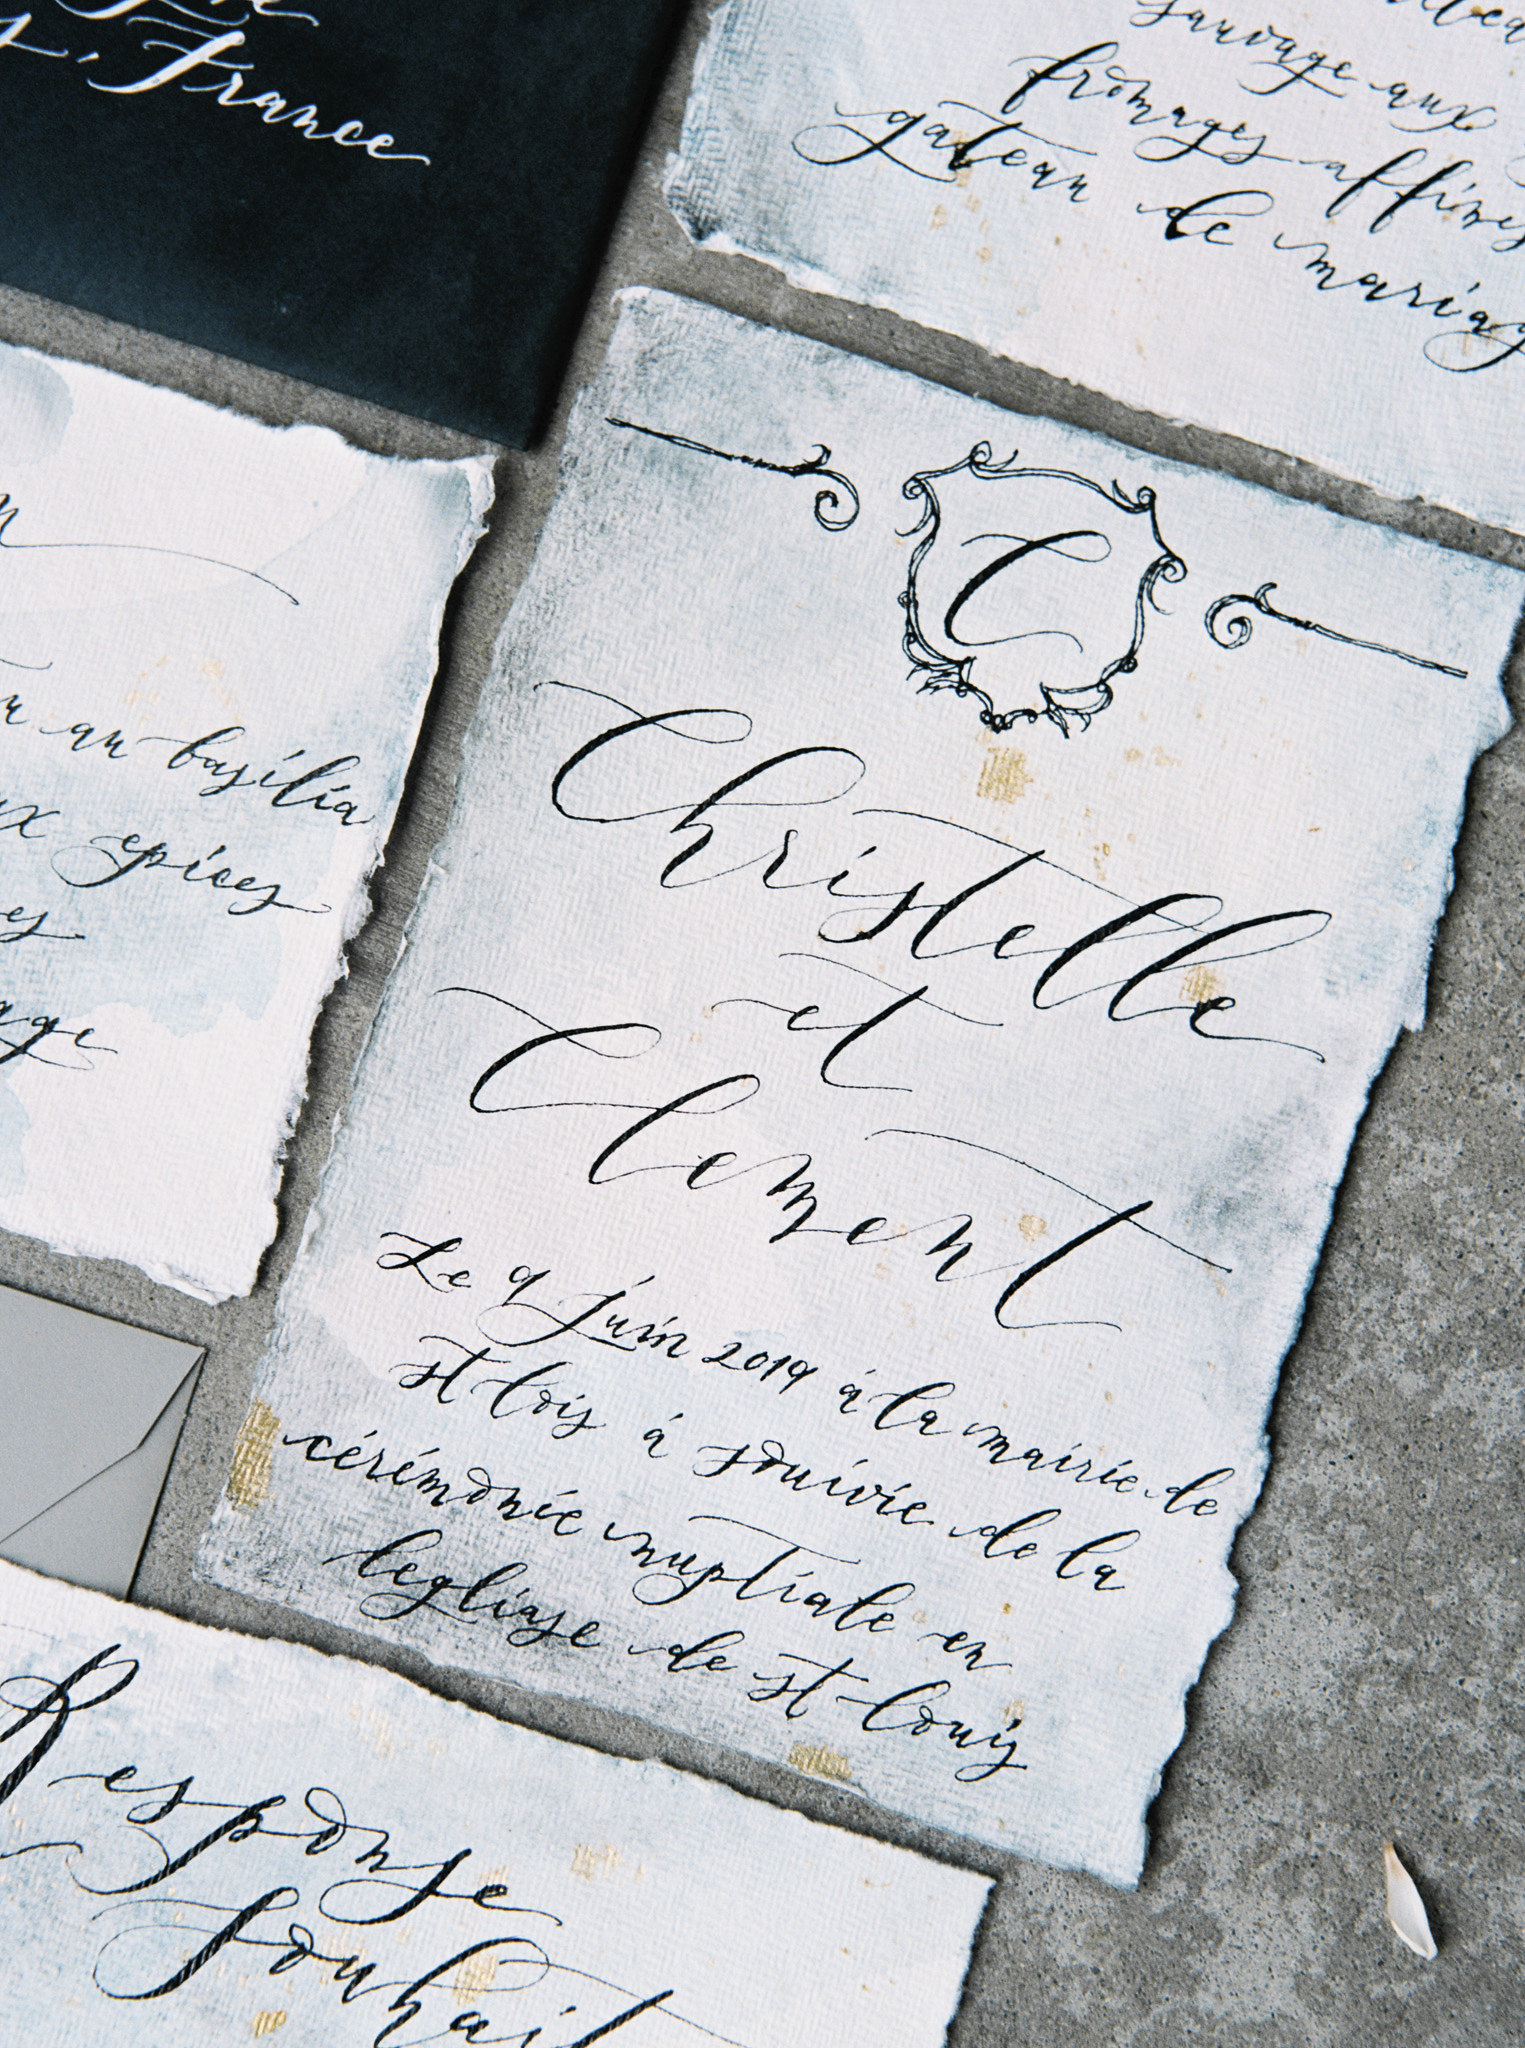 France
sauvage aux
fromages affines
gateau de
au basilia
epices
C
Christelle
et
Clement
Le 9 juin 2019 á la mairie de
st lois á souivie de la
cérémonie nuptiale en
legliase de st louis
Response
Souhait